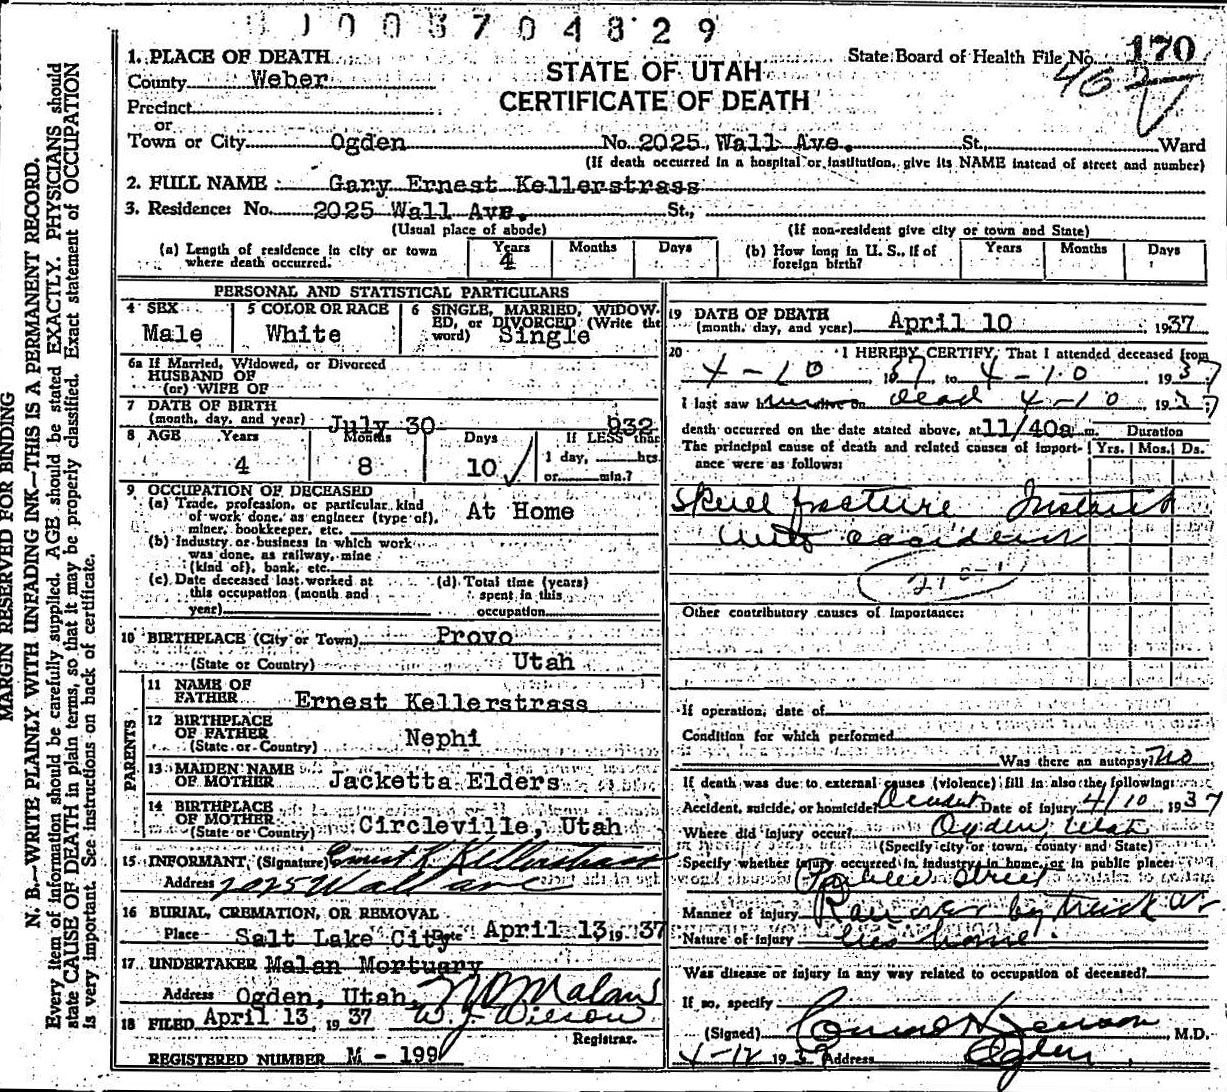 003704829
State Board of Health File No. 170
1. PLACE OF DEATH
STATE OF UTAH
CERTIFICATE OF DEATH
County Weber
Precinct
or
Town or City Ogden No. 2025 Wall Ave. St., Ward
(If death occurred in a hospital or institution, give its NAME instead of street and number)
2. FULL NAME Gary Ernest Kellerstrass
3. Residence: No. 2025 Wall Ave. St.,
(Usual place of abode) (If non-resident give city or town and State)
(a) Length of residence in city or town where death occurred. Years 4 Months Days
(b) How long in U. S., if of foreign birth? Years Months Days
MARGIN RESERVED FOR BINDING
N. B.—WRITE PLAINLY WITH UNFADING INK—THIS IS A PERMANENT RECORD.
Every item of information should be carefully supplied. AGE should be stated EXACTLY. PHYSICIANS should
state CAUSE OF DEATH in plain terms, so that it may be properly classified. Exact statement of OCCUPATION
is very important. See instructions on back of certificate.
PERSONAL AND STATISTICAL PARTICULARS
4 SEX Male
5 COLOR OR RACE White
6 SINGLE, MARRIED, WIDOWED, or DIVORCED (Write the word) Single
6a If Married, Widowed, or Divorced
HUSBAND OF
(or) WIFE OF
7 DATE OF BIRTH
(month, day, and year) July 30 932
8 AGE Years 4 Months 8 Days 10 If LESS than
1 day, hrs.
or min.?
9 OCCUPATION OF DECEASED
(a) Trade, profession, or particular kind
of work done, as engineer (type of),
miner, bookkeeper, etc. At Home
(b) Industry or business in which work
was done, as railway, mine
(kind of), bank, etc.
(c) Date deceased last worked at
this occupation (month and
year)
(d) Total time (years)
spent in this
occupation
10 BIRTHPLACE (City or Town) Provo
(State or Country) Utah
PARENTS
11 NAME OF
FATHER Ernest Kellerstrass
12 BIRTHPLACE
OF FATHER Nephi
(State or Country)
13 MAIDEN NAME
OF MOTHER Jacketta Elders
14 BIRTHPLACE
OF MOTHER
(State or Country) Circleville, Utah
15 INFORMANT (Signature) Ernest K Kellerstrass
Address 2025 Wall ave
16 BURIAL, CREMATION, OR REMOVAL
Place Salt Lake City Date April 13 19 37
17 UNDERTAKER Malan Mortuary
Address Ogden, Utah. N O Malan
18 FILED April 13, 19 37 W. J. Wilson
Registrar.
REGISTERED NUMBER M - 199
19 DATE OF DEATH
(month, day, and year) April 10 1937
20 I HEREBY CERTIFY, That I attended deceased from
4-10, 1937, to 4-10 1937
I last saw dead 4-10 1937
death occurred on the date stated above, at 11/40a m. Duration
The principal cause of death and related causes of importance were as follows: Yrs. Mos. Ds.
Skull fracture Instant
auto accident
210-1
Other contributory causes of importance:
If operation, date of
Condition for which performed
Was there an autopsy? No
If death was due to external causes (violence) fill in also the following:
Accident, suicide, or homicide? Accident Date of injury 4/10, 1937
Where did injury occur? Ogden, Utah
(Specify city or town, county and State)
Specify whether injury occurred in industry, in home, or in public place:
Public Street
Manner of injury Ran over by truck at
Nature of injury his home.
Was disease or injury in any way related to occupation of deceased?
If so, specify
(Signed) Conrad H Jenson, M.D.
4-12 1937 Address Ogden